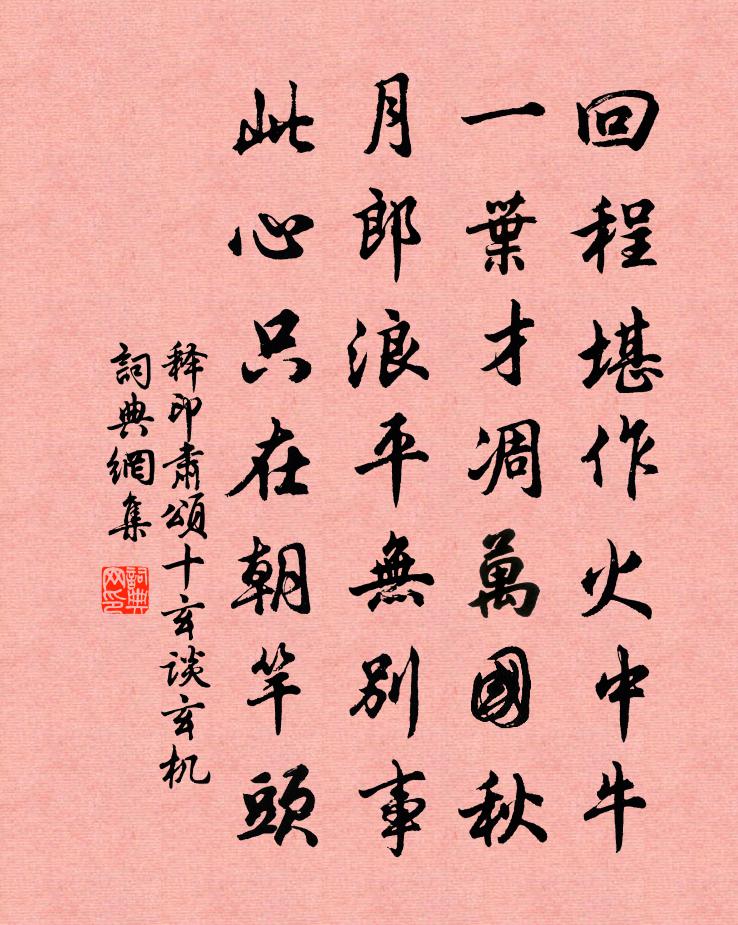 回程堪作火中牛
一葉才凋萬國秋
月郎浪平無別事
此心只在朝竿頭
释印肅頌十玄谈玄机
詞典網集
詞典网印